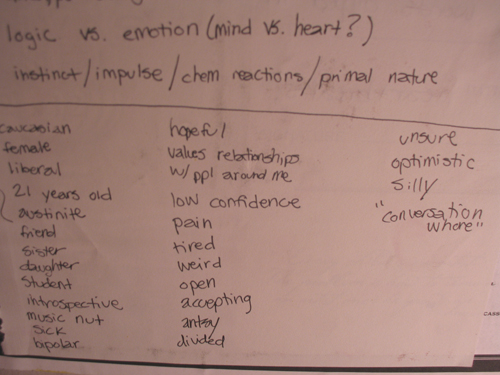 logic vs. emotion (mind vs. heart?)
instinct/impulse/chem reactions/primal nature
caucasian
female
liberal
21 years old
austinite
friend
sister
daughter
student
introspective
music nut
sick
bipolar
hopeful
values relationships
w/ ppl around me
low confidence
pain
tired
weird
open
accepting
antsy
divided
unsure
optimistic
silly
"conversation
whore"